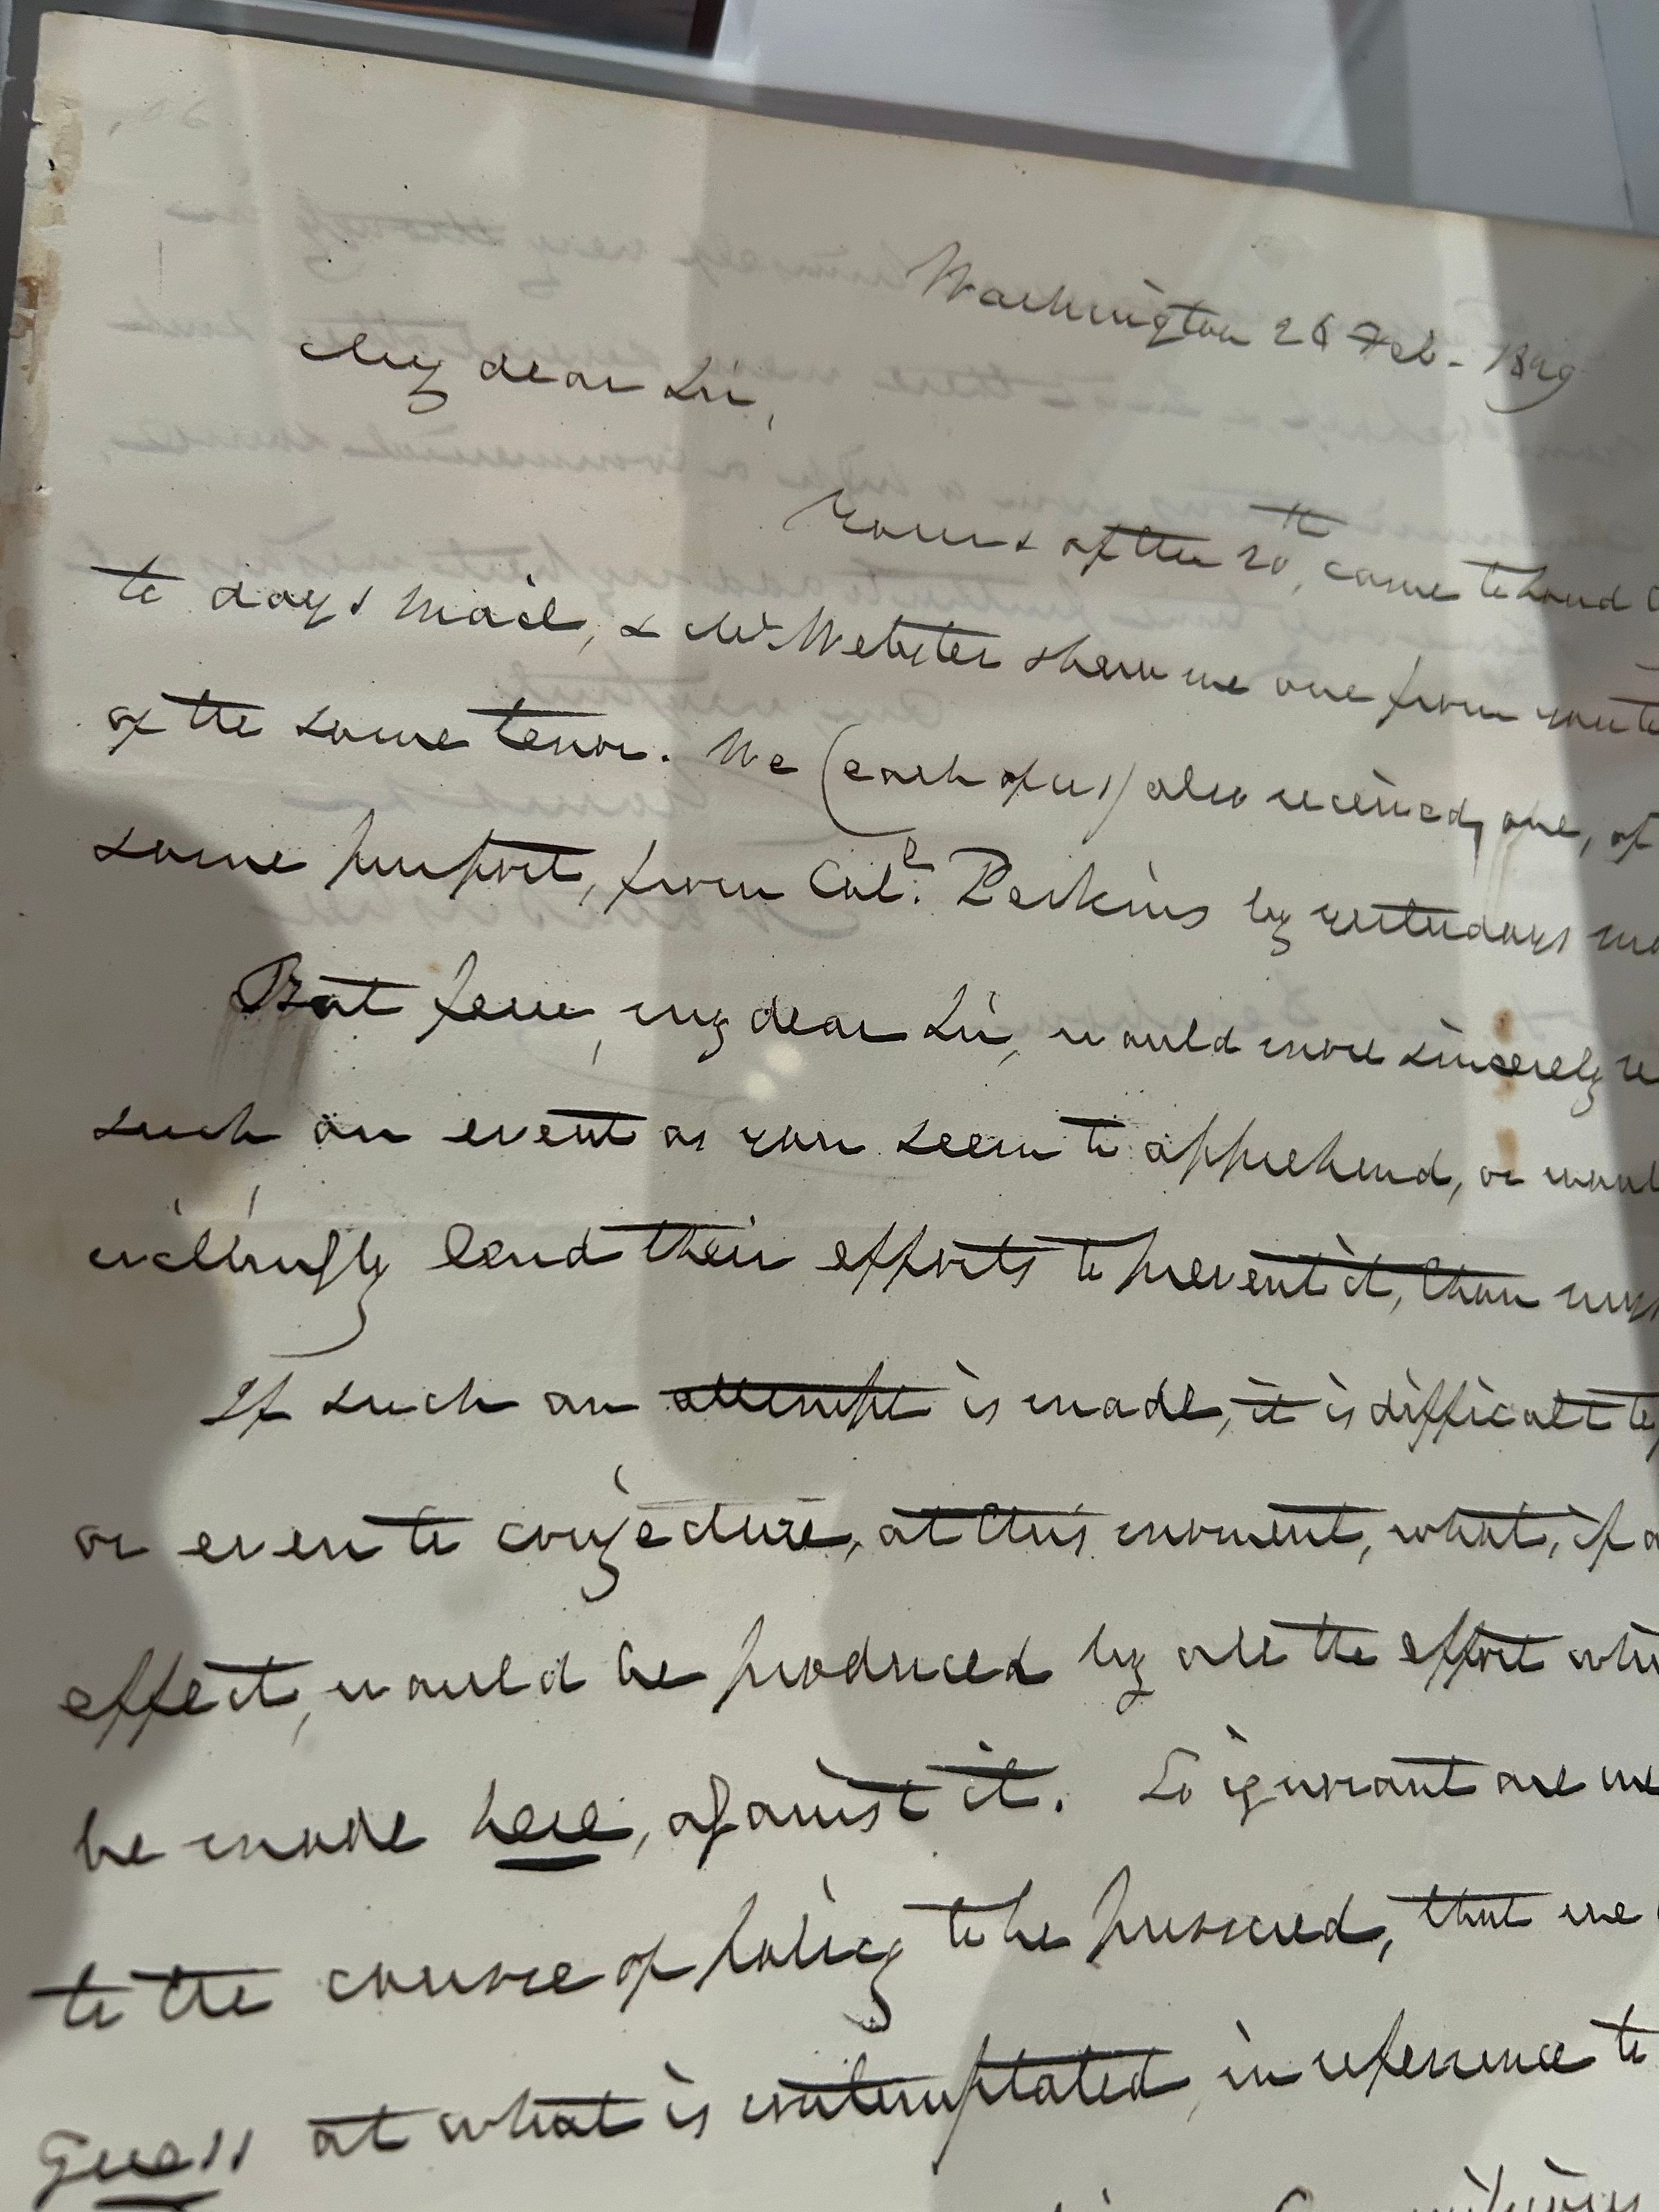 Washington 26 Feb. 1829
My dear Sir,
Yours of the 20th, came to hand
to days Mail, & Mr Webster shew me one from
of the same tenor. We (each of us) also received, one, of
same purport, from Col. Perkins by yesterdays
But few, my dear Sir, would more sincerely
such an event as you seem to apprehend, or
willingly lend their efforts to prevent it, than
If such an attempt is made, it is difficult to
or even to conjecture, at this moment, what, if
effect, would be produced by all the effort
be made here, against it. So ignorant are we
to the course of policy to be pursued, that we
Guess at what is contemplated, in reference to